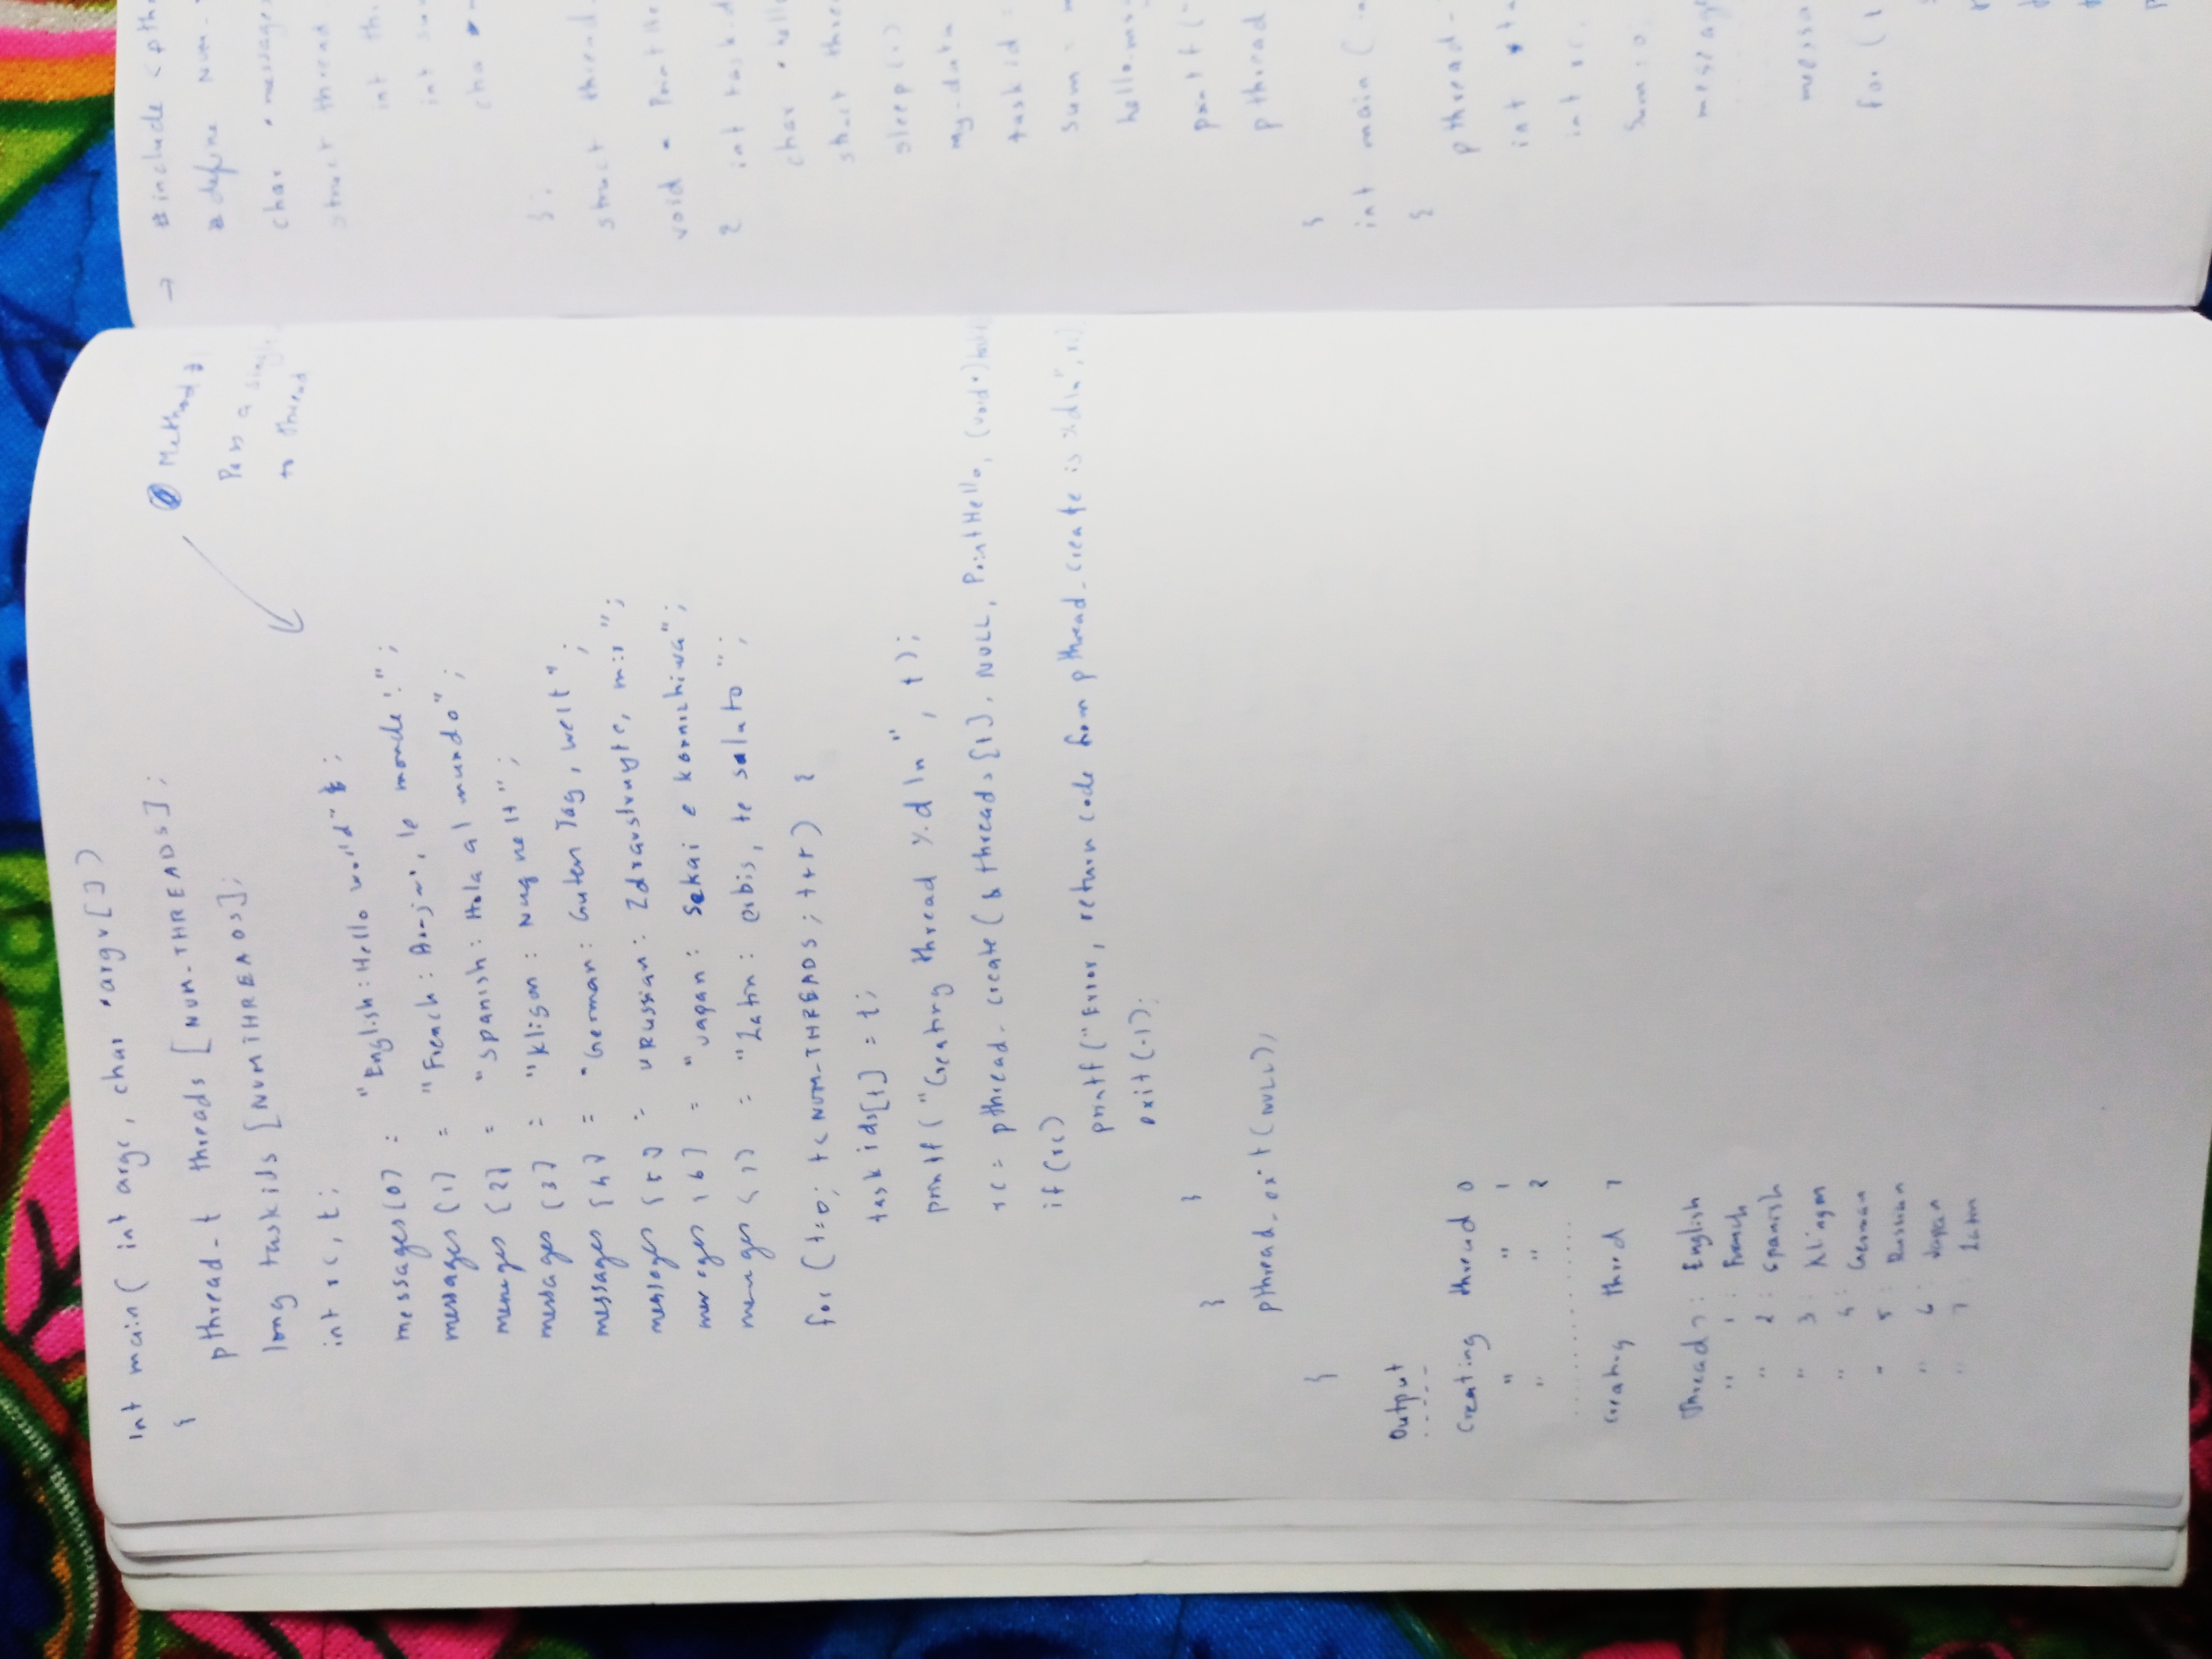 int main( int argc, char *argv[])
{
pthread_t threads [NUM_THREADS];
long taskids [NUMTHREADS];
int rc, t;
Method 2:
Pass a
to thread
messages(0) = "English: Hello world";
messages (1) = "French: Bonjour, le monde!";
messages (2) = "Spanish: Hola al mundo";
messages (3) = "Kligon: Nuq neH";
messages (4) = "German: Guten Tag, welt";
messages (5) = Russian: Zdravstvuyte, mir";
messages (6) = "Japan: Sekai e konnichiwa";
messages (7) = "Latin: Orbis, te saluto";
for (t=0; t<NUM_THREADS; t++) {
taskids[t] = t;
printf("Creating thread %d\n", t);
rc = pthread_create(& threads[t], NULL, PrintHello, (void*)
if (rc)
printf("Error, return code from pthread_create is %d\n", rc)
exit(-1);
}
}
pthread_exit(NULL);
}
Output
-----
Creating thread 0
" " 1
" " 2
..........
Creating thread 7
Thread : English
" 1 : French
" 2 : Spanish
" 3 : Klingon
" 4 : German
" 5 : Russian
" 6 : Japan
" 7 Latin
→ #include <pth
#define NUM-
char *messages
struct thread
int th
int su
cha *
};
struct thread
void * PrintHe
{ int task id
char * hell
struct thre
sleep(1)
my-data
taskid =
sum =
hello_msg
printf("
pthread
}
int main (in
{
pthread-
int *ta
int rc.
Sum = 0
message
messa
for (t